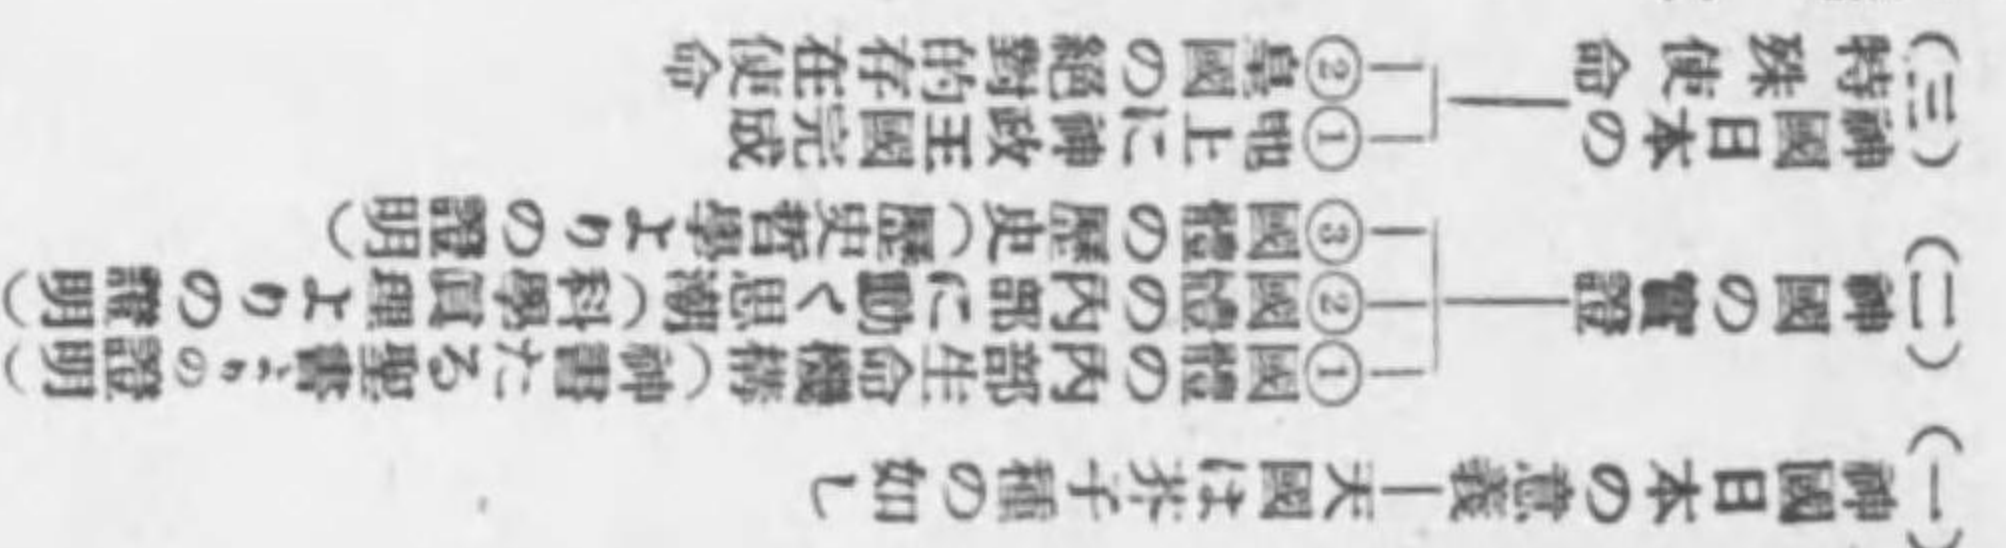 (一)神國日本の意義―天國は芥子種の如し
(二)神國の實證
①國體の内部生命機構(神書たる聖書よりの證明)
②國體の内部に動く思潮(科學眞理よりの證明)
③國體の歷史(歷史哲學よりの證明)
(三)神國日本の
特殊使命
①地上に神政王國完成
②皇國の絕對的存在使命